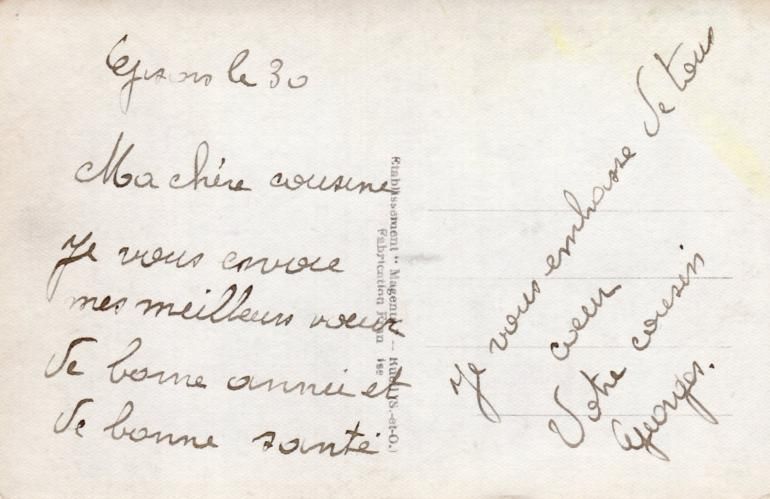 Gisors le 30
Ma chère cousine
Je vous envoie
mes meilleurs vœux
de bonne année et
de bonne santé
Etablissement " Magenta -- Rueil (S.-et-O.)
Fabrication Française
Je vous embrasse de tous
cœur
Votre cousin
Georges.